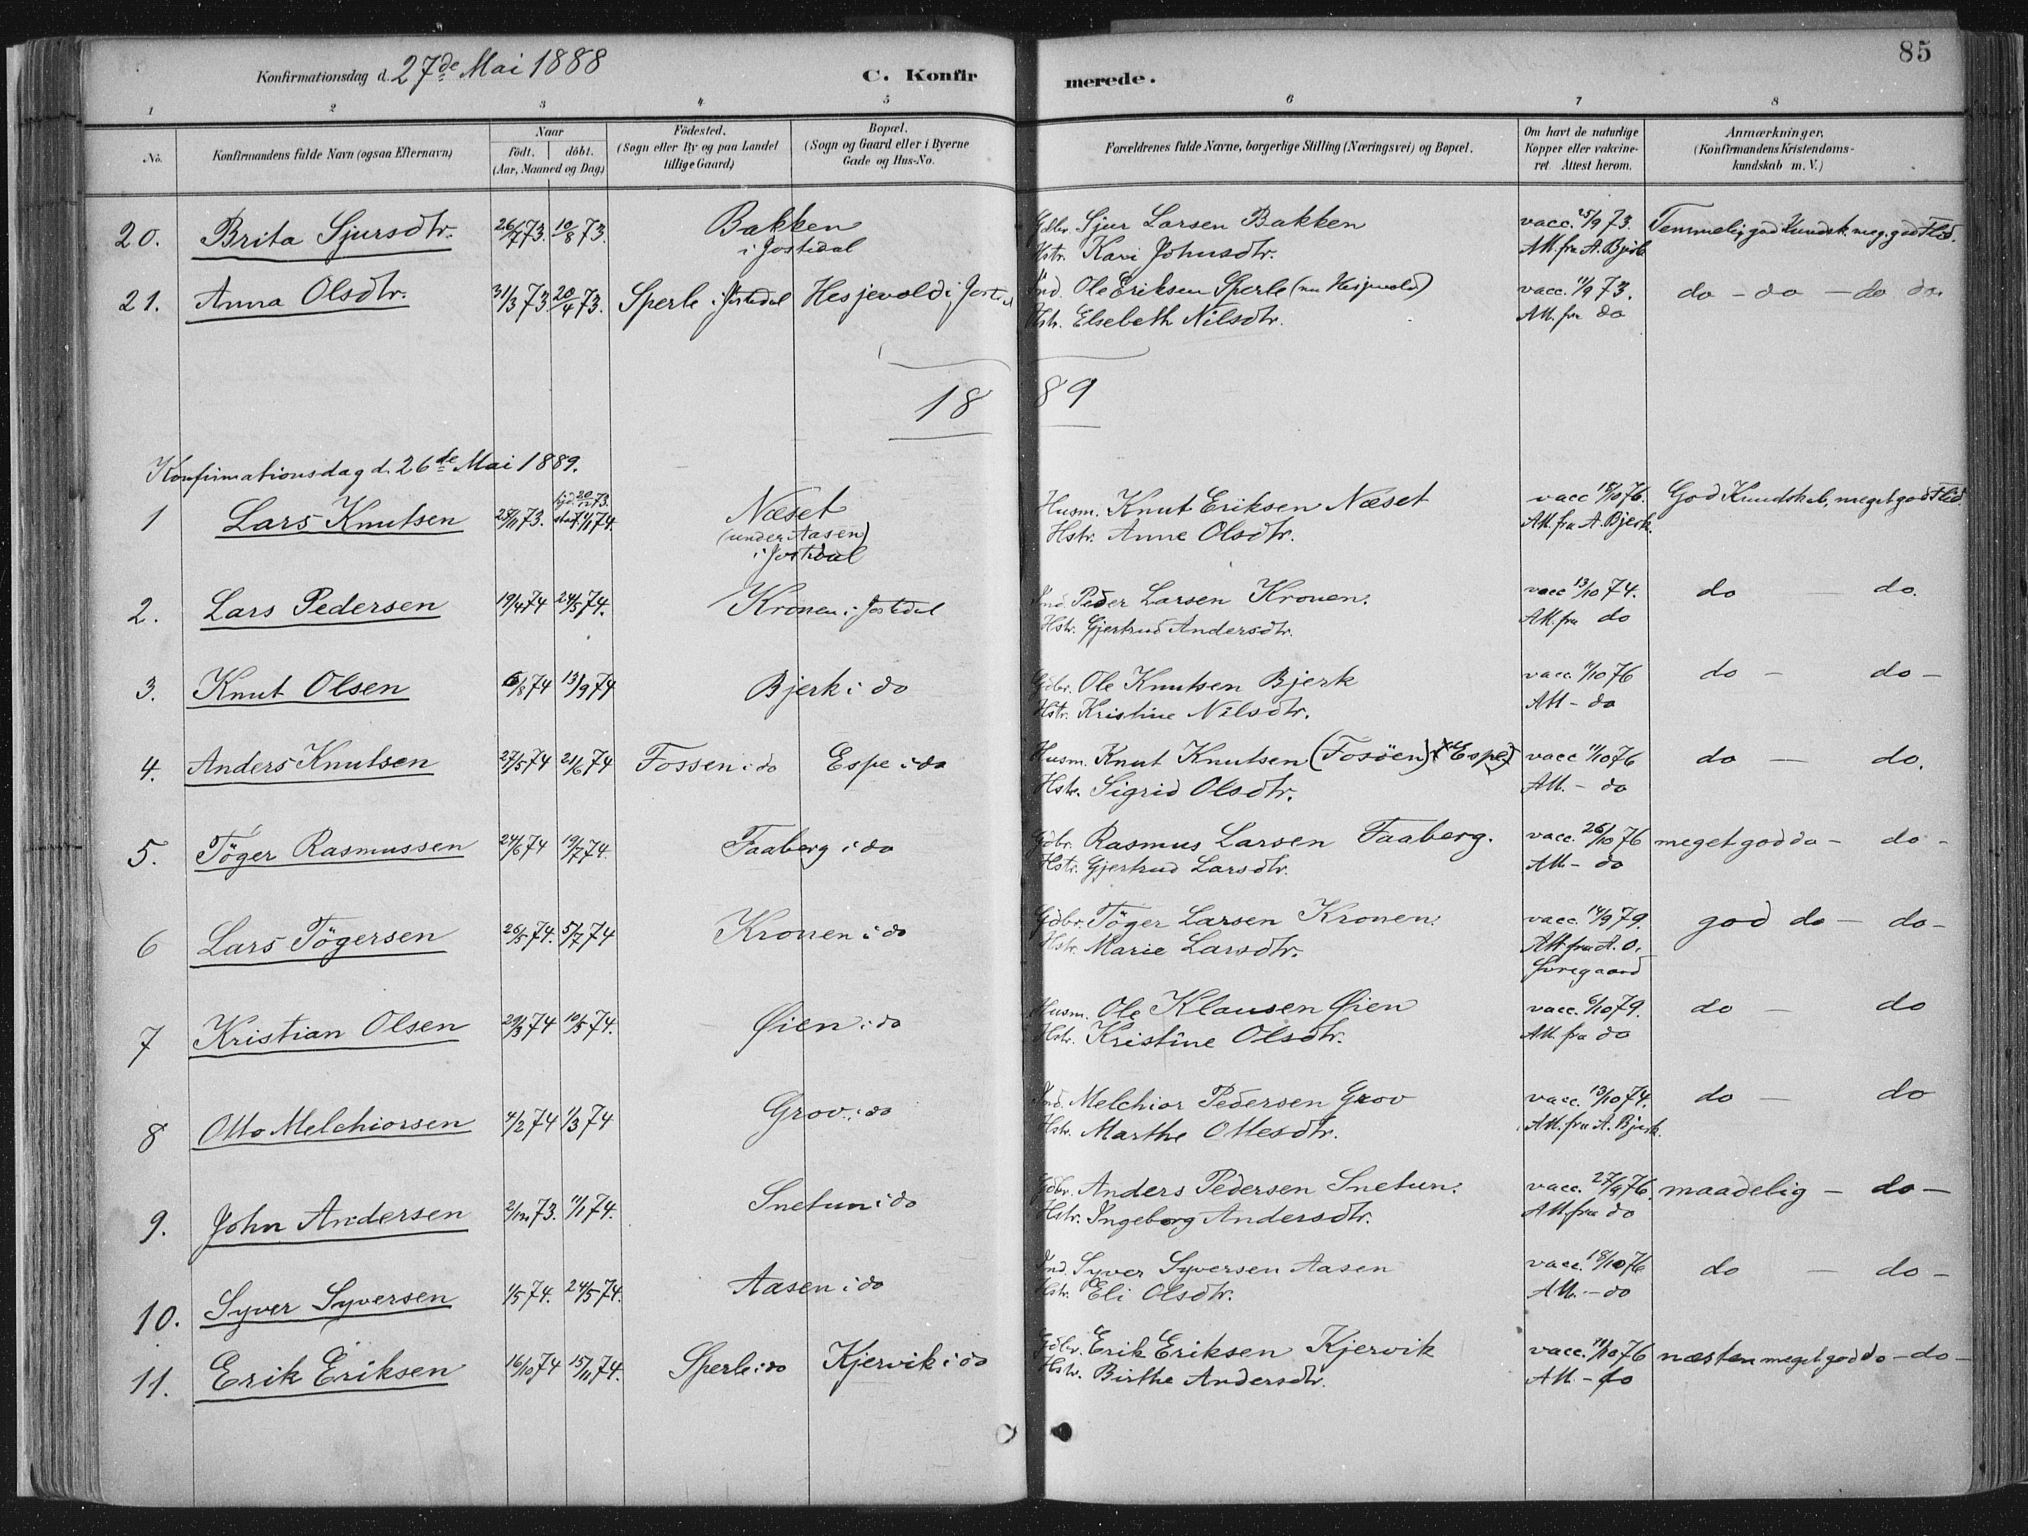 85
Konfirmationsdag d. 27de Mai 1888
C. Konfirmerede.
1 2 3 4 5 6 7 8
No.
Konfirmandens fulde Navn (ogsaa Efternavn)
Naar
födt. döbt.
(Aar, Maaned og Dag)
Födested.
(Sogn eller By og paa Landet
tillige Gaard)
Bopæl.
(Sogn og Gaard eller i Byerne
Gade og Hus-No.
Forældrenes fulde Navne, borgerlige Stilling (Næringsvei) og Bopæl.
Om havt de naturlige
Kopper eller vakcine-
ret. Attest herom.
Anmærkninger.
(Konfirmandens Kristendoms-
kundskab m. V.)
20. Brita Sjursdtr. 26/7 73. 10/8 73. Bakken Gdbr. Sjur Larsen Bakken vacc. 25/9 73. Temmelig god Kundsk. meg. god Flid.
i Jostedal Hstr. Kari Johnsdtr. Att. fra A. Bjerk
21. Anna Olsdtr. 31/3 73 20/4 73. Sperle i Jostedal Hesjevold i Jostedal Ind. Ole Eriksen Sperle (nu Hesjevold) vacc. 11/9 73. do - do - do do.
Hstr. Elsebeth Nilsdtr. Att. fra do
1889
Konfirmationsdag d. 26de Mai 1889.
1 Lars Knutsen 28/11 73. hjd. 20/12 73. Næset Husm. Knut Eriksen Næset vacc 18/10 76. God Kundskab, meget god Flid.
stad. 11/1 74. (under Aasen) Hstr. Anne Olsdtr. Att. fra A. Bjerk.
i Jostedal
2. Lars Pedersen 19/4 74 24/5 74. Kronen i Jostedal Ind. Peder Larsen Kronen. vacc 13/10 74. do - do.
Hstr. Gjertrud Andersdtr. Att. fra do
3. Knut Olsen 6/8 74 13/9 74 Bjerk i do Gdbr. Ole Knutsen Bjerk vacc. 11/10 76 do - do -
Hstr. Kristine Nilsdtr. Att - do
4. Anders Knutsen 27/5 74 21/6 74 Fossen i do Espe i do Husm. Knut Knutsen (Fosöen) Espe) vacc 11/10 76 do - do.
Hstr. Sigrid Olsdtr. Att. - do
5. Töger Rasmussen 24/6 74 19/7 74. Faaberg i do Gdbr. Rasmus Larsen Faaberg. vacc. 26/10 76 meget god do - do -
Hstr. Gjertrud Larsdtr. Att - do
6 Lars Tögersen 26/5 74. 5/7 74 Kronen i do Gdbr. Töger Larsen Kronen. vacc. 14/9 79. god do - do -
Hstr. Marie Larsdtr. Att fra A. O.
7 Kristian Olsen 29/3 74 10/5 74. Øien i do Husm. Ole Klausen Øien vacc. 6/10 79. do - do
Hstr. Kristine Olsdtr. Att. fra do
8 Otto Melchiorsen 4/2 74 1/3 74 Grov i do Ind. Melchior Pedersen Grov vacc. 13/10 74. do - do
Hstr. Marthe Ottesdtr. Att. fra A. Bjerk.
9. John Andersen 2/12 73. 11/1 74. Snetun i do Gdbr. Anders Pedersen Snetun. vacc. 27/9 76. maadelig - do -
Hstr. Ingeborg Andersdtr. Att. fra do
10. Syver Syversen 1/5 74. 24/5 74. Aasen i do Ind. Syver Syversen Aasen vacc. 18/10 76 do - do -
Hstr. Eli Olsdtr. Att. - do
11. Erik Eriksen 16/10 74 15/11 74. Sperle i do Kjervik i do Gdbr. Erik Eriksen Kjervik vacc. 11/10 76 næsten meget god do - do -
Hstr. Birthe Andersdtr. Att. - do